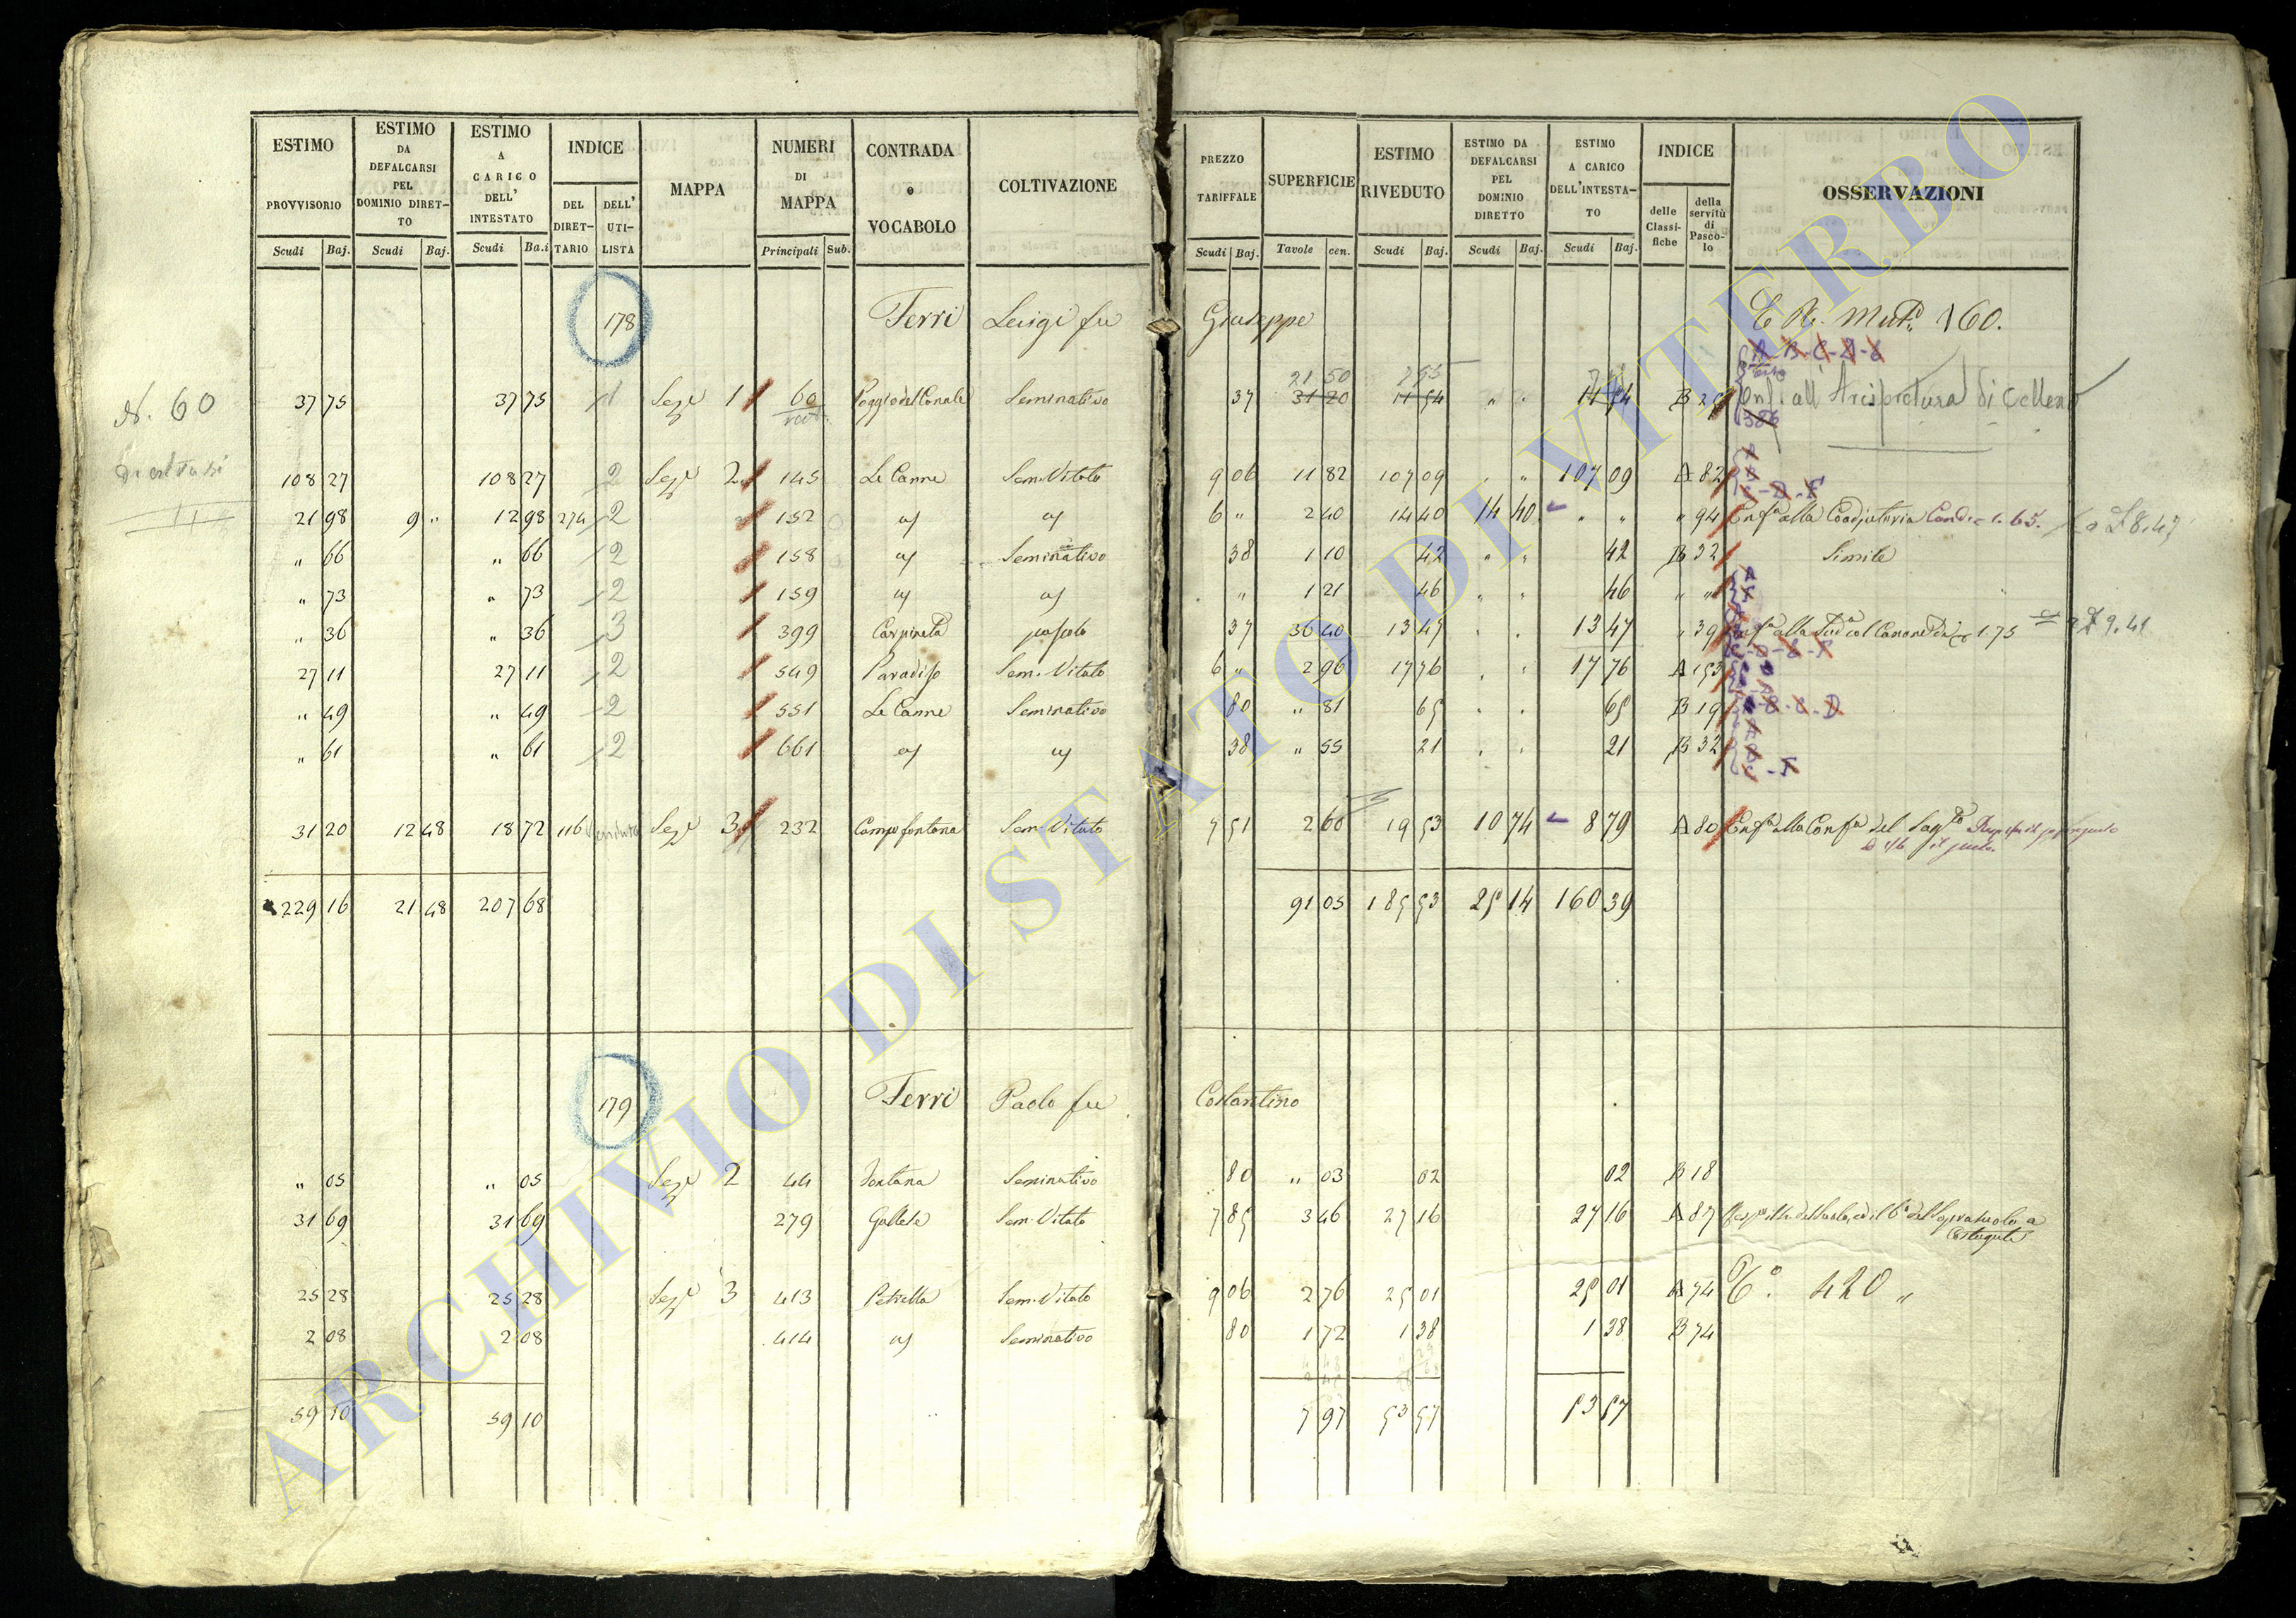 ESTIMO PROVVISORIO Scudi Baj. ESTIMO DA DEFALCARSI PEL DOMINIO DIRET-TO Scudi Baj. ESTIMO A CARICO DELL' INTESTATO Scudi Ba.i INDICE DEL DIRET-TARIO DELL' UTI-LISTA MAPPA NUMERI DI MAPPA Principali Sub. CONTRADA o VOCABOLO COLTIVAZIONE PREZZO TARIFFALE Scudi Baj. SUPERFICIE Tavole cen. ESTIMO RIVEDUTO Scudi Baj. ESTIMO DA DEFALCARSI PEL DOMINIO DIRETTO Scudi Baj. ESTIMO A CARICO DELL'INTESTA-TO Scudi Baj. INDICE delle Classi-fiche della servitù di Pasco-lo OSSERVAZIONI
178 Ferri Luigi fu Giuseppe 160.
A B C D E
21 50 7 95
N. 60 37 75 37 75 1 Seze 1 60 Poggio del Conale Seminativo 37 31 20 11 54 " " 11 54 B 29 all' Arcipretura di Celleno
386
108 27 108 27 2 Seze 2 145 Le Canne Sem. Vitato 9 06 11 82 107 09 " " 107 09 A 82
21 98 9 " 12 98 274 2 152 " " 6 " 2 40 14 40 14 40 " " " 94 Enfa alla Coadjutoria 1.65. £ 8.47
" 66 " 66 2 158 " Seminativo 38 1 10 42 " " 42 B 32 Simile
" 73 " 73 2 159 " " " 1 21 46 " " 46 " "
" 36 " 36 3 399 Carpineta pascolo 37 36 40 13 47 " " 13 47 " 39 1.75 £ 9.41
27 11 27 11 2 549 Paradiso Sem. Vitato 6 " 2 96 17 76 " " 17 76 A 153
" 49 " 49 2 551 Le Canne Seminativo 80 " 81 65 " " 65 B 19
" 61 " 61 2 661 " " 38 " 55 21 " " 21 B 32
31 20 12 48 18 72 116 Seze 3 232 Campo fontana Sem. Vitato 7 51 2 60 19 53 10 74 8 79 A 80 Enfa alla Confa del Sagto
229 16 21 48 207 68 91 05 185 53 25 14 160 39
179 Ferri Paolo fu Costantino
" 05 " 05 Seze 2 44 Fontana Seminativo 80 " 03 02 02 B 18
31 69 31 69 279 Gallese Sem. Vitato 7 85 3 46 27 16 27 16 A 87
25 28 25 28 Seze 3 413 Petrella Sem. Vitato 9 06 2 76 25 01 25 01 A 74 420 "
2 08 2 08 414 " Seminativo 80 1 72 1 38 1 38 B 74
59 10 59 10 7 97 53 57 53 57
ARCHIVIO DI STATO DI VITERBO